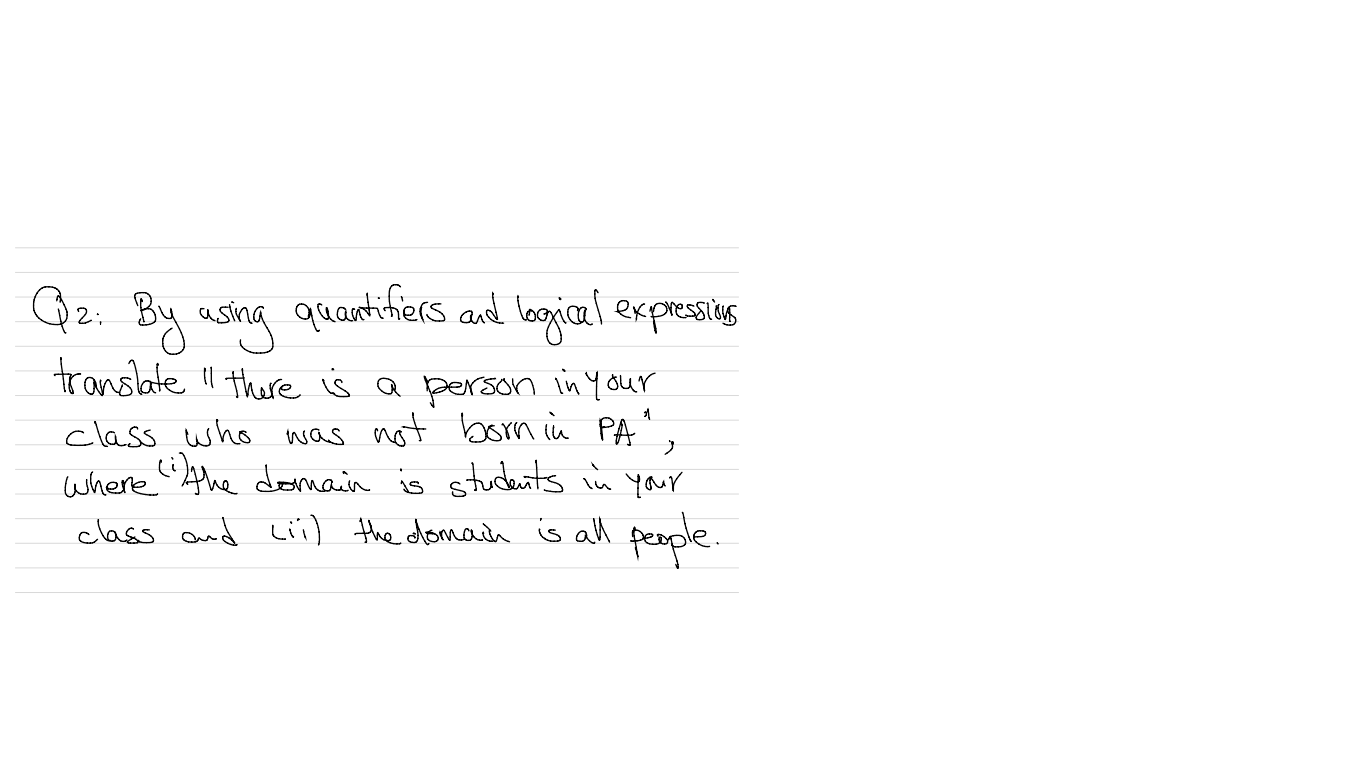 Q2: By using quantifiers and logical expressions
translate "there is a person in your
class who was not born in PA",
where (i) the domain is students in your
class and (ii) the domain is all people.